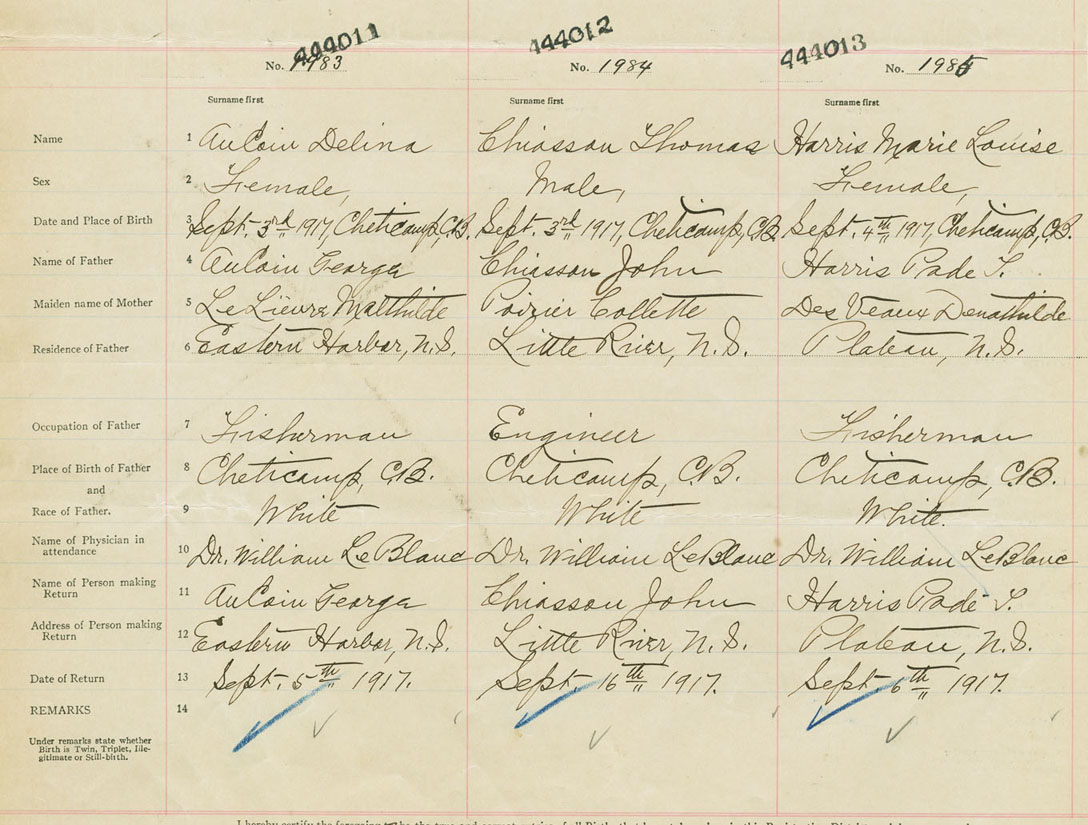 444011 444012 444013
No. 1983 No. 1984 No. 1985
Surname first Surname first Surname first
Name 1 AuCoin Delina Chiasson Thomas Harris Marie Louise
Sex 2 Female, Male, Female,
Date and Place of Birth 3 Sept. 3rd 1917, Cheticamp, C.B. Sept. 3rd 1917, Cheticamp, C.B. Sept. 4th 1917, Cheticamp, C.B.
Name of Father 4 AuCoin George Chiasson John Harris Pade S.
Maiden name of Mother 5 LeLievre Matthilde Poirier Collette Des Veaux Denathilde
Residence of Father 6 Eastern Harbor, N.S. Little River, N.S. Plateau, N.S.
Occupation of Father 7 Fisherman Engineer Fisherman
Place of Birth of Father 8 Cheticamp, C.B. Cheticamp, C.B. Cheticamp, C.B.
and
Race of Father. 9 White White White.
Name of Physician in
attendance 10 Dr. William LeBlanc Dr. William LeBlanc Dr. William LeBlanc
Name of Person making
Return 11 AuCoin George Chiasson John Harris Pade S.
Address of Person making
Return 12 Eastern Harbor, N.S. Little River, N.S. Plateau, N.S.
Date of Return 13 Sept. 5th 1917. Sept. 16th 1917. Sept. 6th 1917.
REMARKS 14
Under remarks state whether
Birth is Twin, Triplet, Ille-
gitimate or Still-birth.
I hereby certify the foregoing to be the true and correct